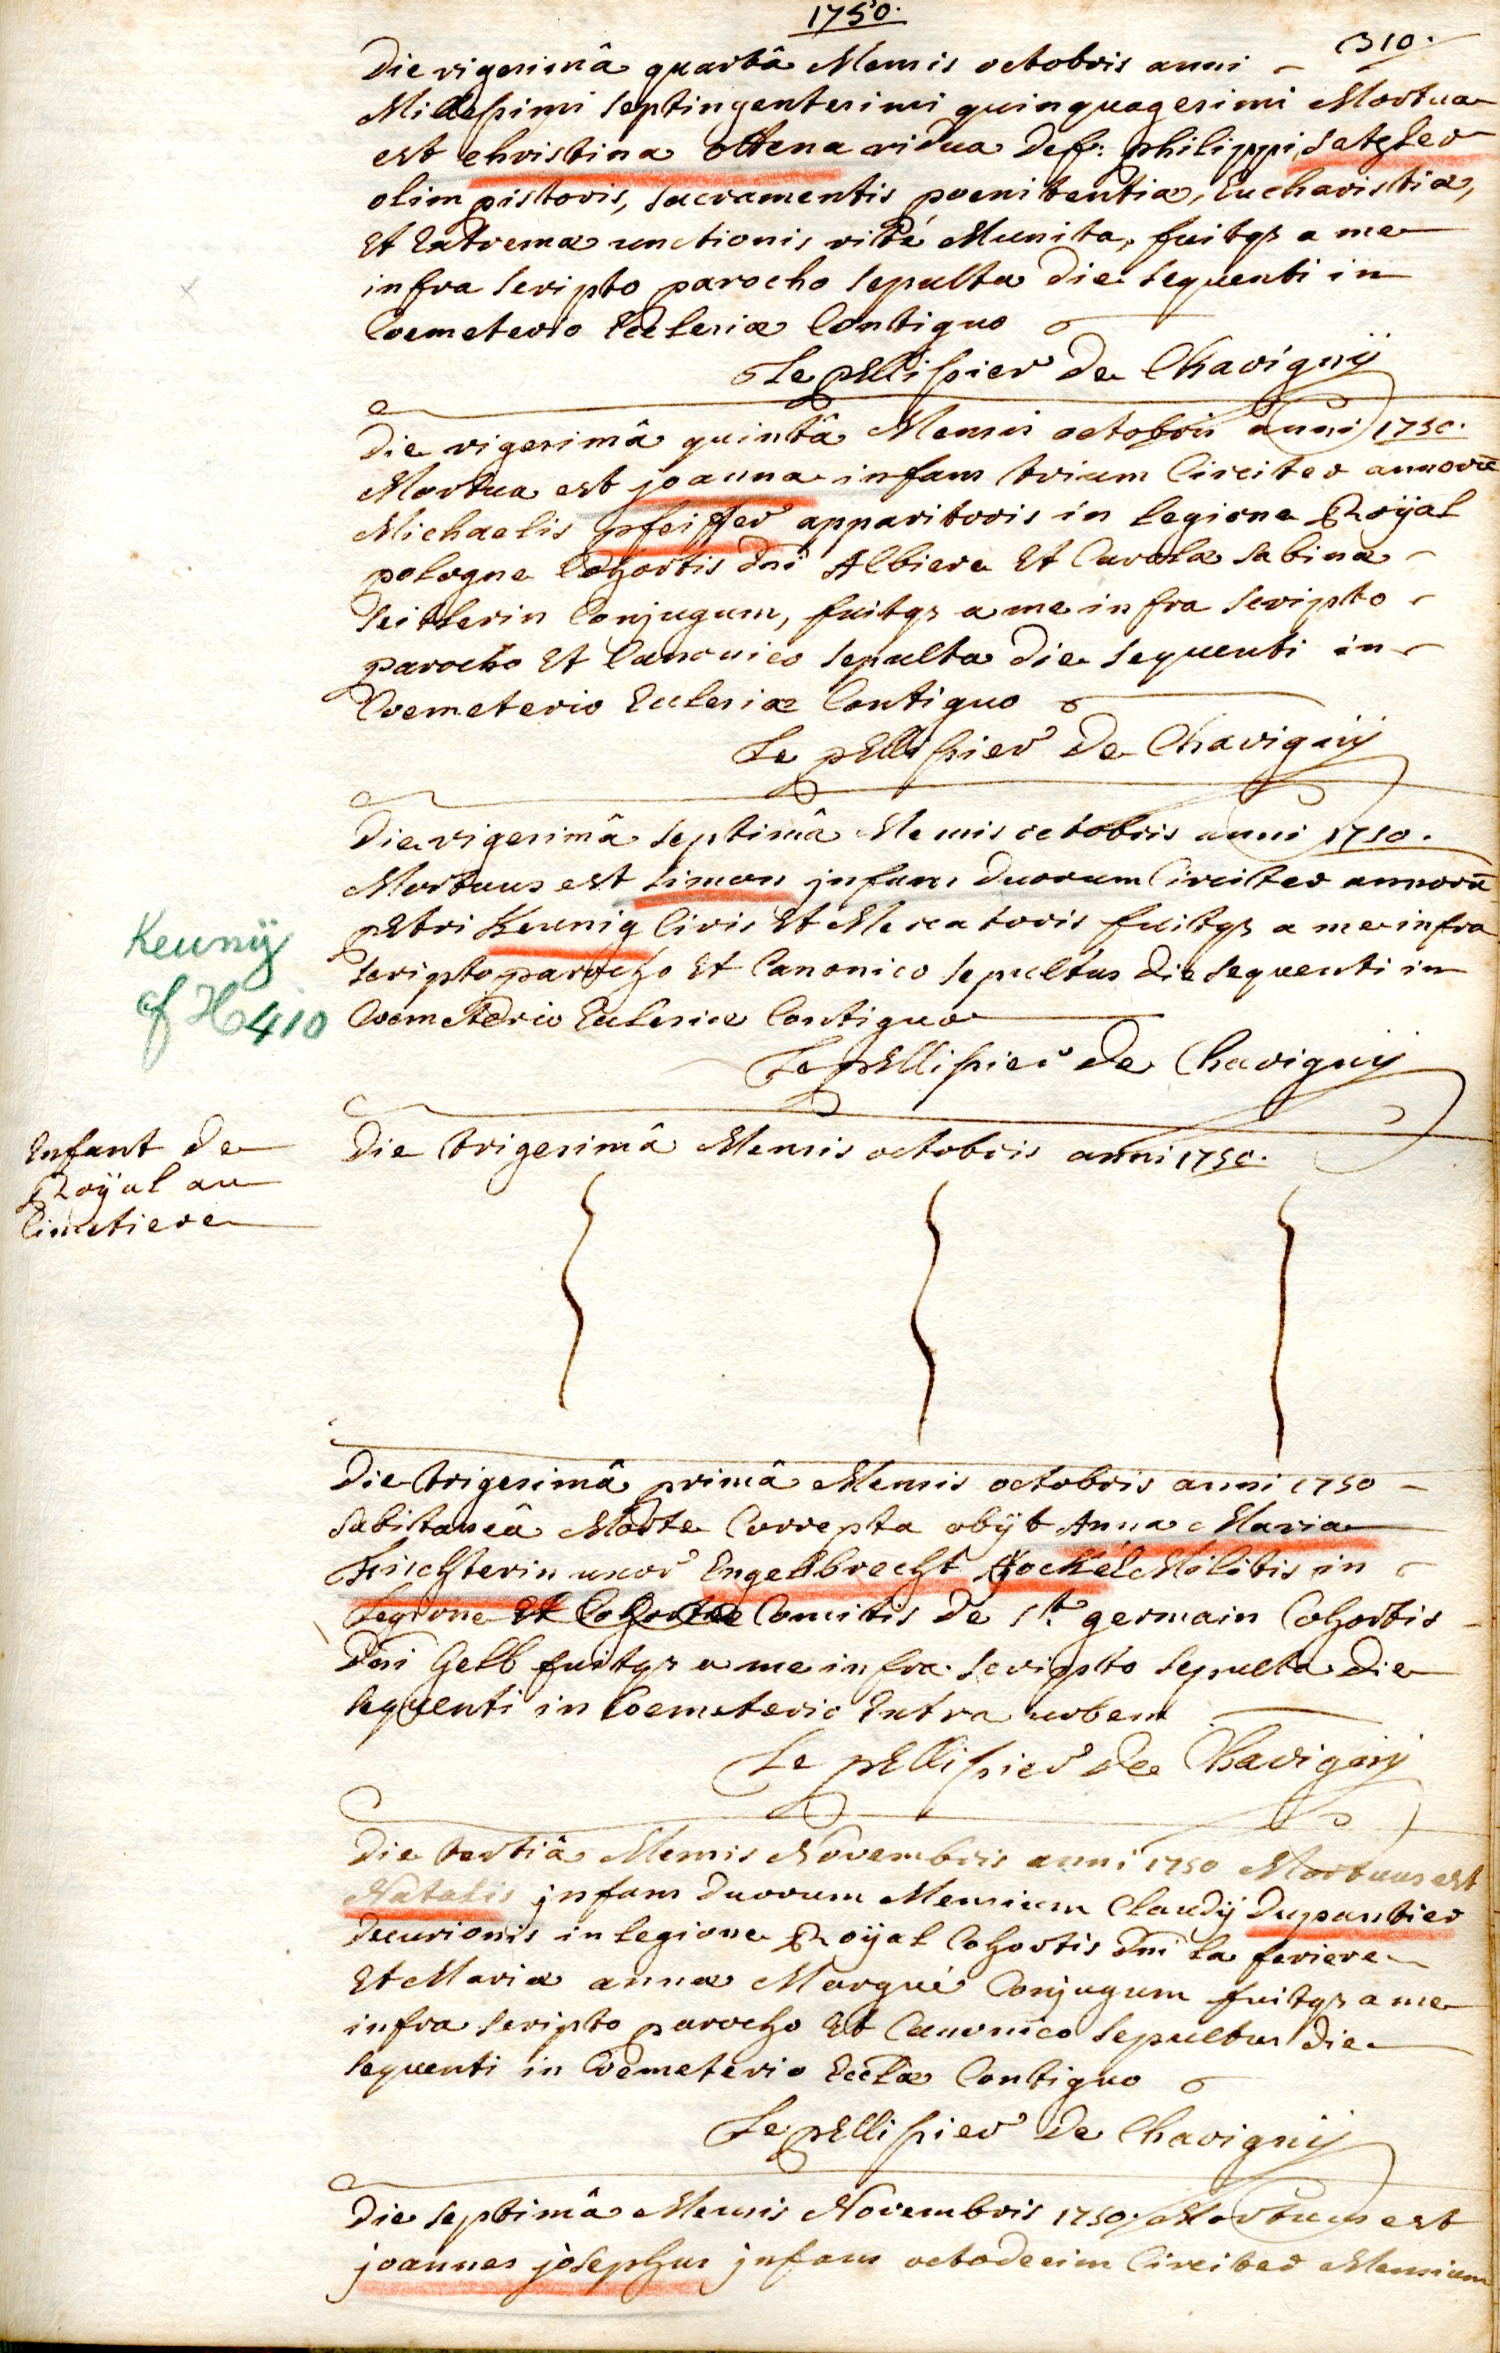 1750.
310.
Die vigesimâ quartâ Mensis octobris anni
Millesimi septingentesimi quinquagesimi Mortua
est christina ottena vidua def: philippi satzler
olim pistoris, sacramentis poenitentiæ, Eucharistiæ,
Et Extremæ unctionis rité Munita, fuitqз a me
infra scripto parocho sepulta die sequenti in
Coemeterio Ecclesiæ Contiguo
Le pEllissier de Chavignÿ
Die vigesimâ quintâ Mensis octobris anni 1750.
Mortua est joanna infans trium Circiter annorū
Michaelis pfeiffer apparitoris in legione Roÿal
pologne Cohortis Dni Albiere Et Carolæ sabinæ
seitlerin Conjugum, fuitqз a me infra scripto
parocho Et Canonico sepulta die sequenti in
Coemeterio Ecclesiæ Contiguo
Le pEllissier de Chavignÿ
Die vigesimâ septimâ Mensis octobris anni 1750.
Mortuus est simon jnfans duorum Circiter annorū
pEtri Keunig Civis Et Mercatoris fuitqз a me infra
scripto parocho Et Canonico sepultus die sequenti in
Coemeterio Ecclesiæ Contiguo
Le pEllissier de Chavignÿ
Keunÿ
cf H 410
Enfant de
Roÿal au
Cimetiere
Die trigesimâ Mensis octobris anni 1750.
Die trigesimâ primâ Mensis octobris anni 1750
subitaneâ Morte Correpta obÿt Anna Maria
uxor Engelbrecht Militis in
Legione Et Cohortæ Comitis de st. germain Cohortis
Dni Gelb fuitqз a me infra scripto sepulta die
sequenti in Coemeterio Extra urbem
Le pEllissier de Chavignÿ
Die tertiâ Mensis Novembris anni 1750 Mortuus est
Natalis jnfans duorum Mensium Claudÿ Dupantier
Decurionis in legione Roÿal Cohortis Dni la feriere
Et Mariæ annæ Marqué Conjugum fuitqз a me
infra scripto parocho Et Canonico sepultus die
sequenti in Coemeterio Ecclæ Contiguo
Le pEllissier de Chavignÿ
Die septimâ Mensis Novembris 1750. Mortuus est
joannes josephus jnfans octodecim Circiter Mensium